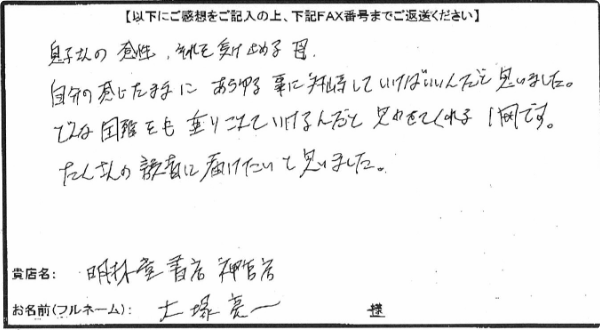 【以下にご感想をご記入の上、下記FAX番号までご返送ください】
息子さんの感性、それを受け止める母。
自分の感じたままに あらゆる事に対峙していけばいいんだと思いました。
どんな困難をも乗りこえていけるんだと思わせてくれる 1冊です。
たくさんの読者に届けたいと思いました。
貴店名: 明林堂書店 神宮店
お名前(フルネーム): 大塚亮一 様